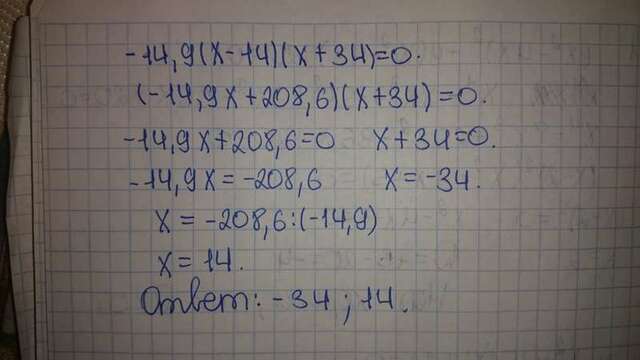 -14,9(x-14)(x+34)=0.
(-14,9x+208,6)(x+34)=0.
-14,9x+208,6=0 x+34=0.
-14,9x=-208,6 x=-34.
x=-208,6:(-14,9)
x=14.
Ответ: -34; 14.